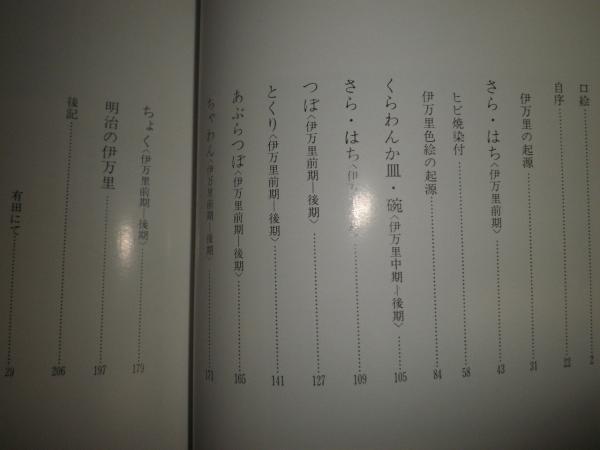 口絵……2
自序……22
伊万里の起源……31
さら・はち〈伊万里前期〉……43
ヒビ焼染付……58
伊万里色絵の起源……84
くらわんか皿・碗〈伊万里中期―後期〉……105
さら・はち〈伊万……109
つぼ〈伊万里前期―後期〉……127
とくり〈伊万里前期―後期〉……141
あぶらつぼ〈伊万里前期―後期〉……165
ちゃわん〈伊万里前期―後期〉……171
ちょく〈伊万里前期―後期〉……179
明治の伊万里……197
後記……206
有田にて……29